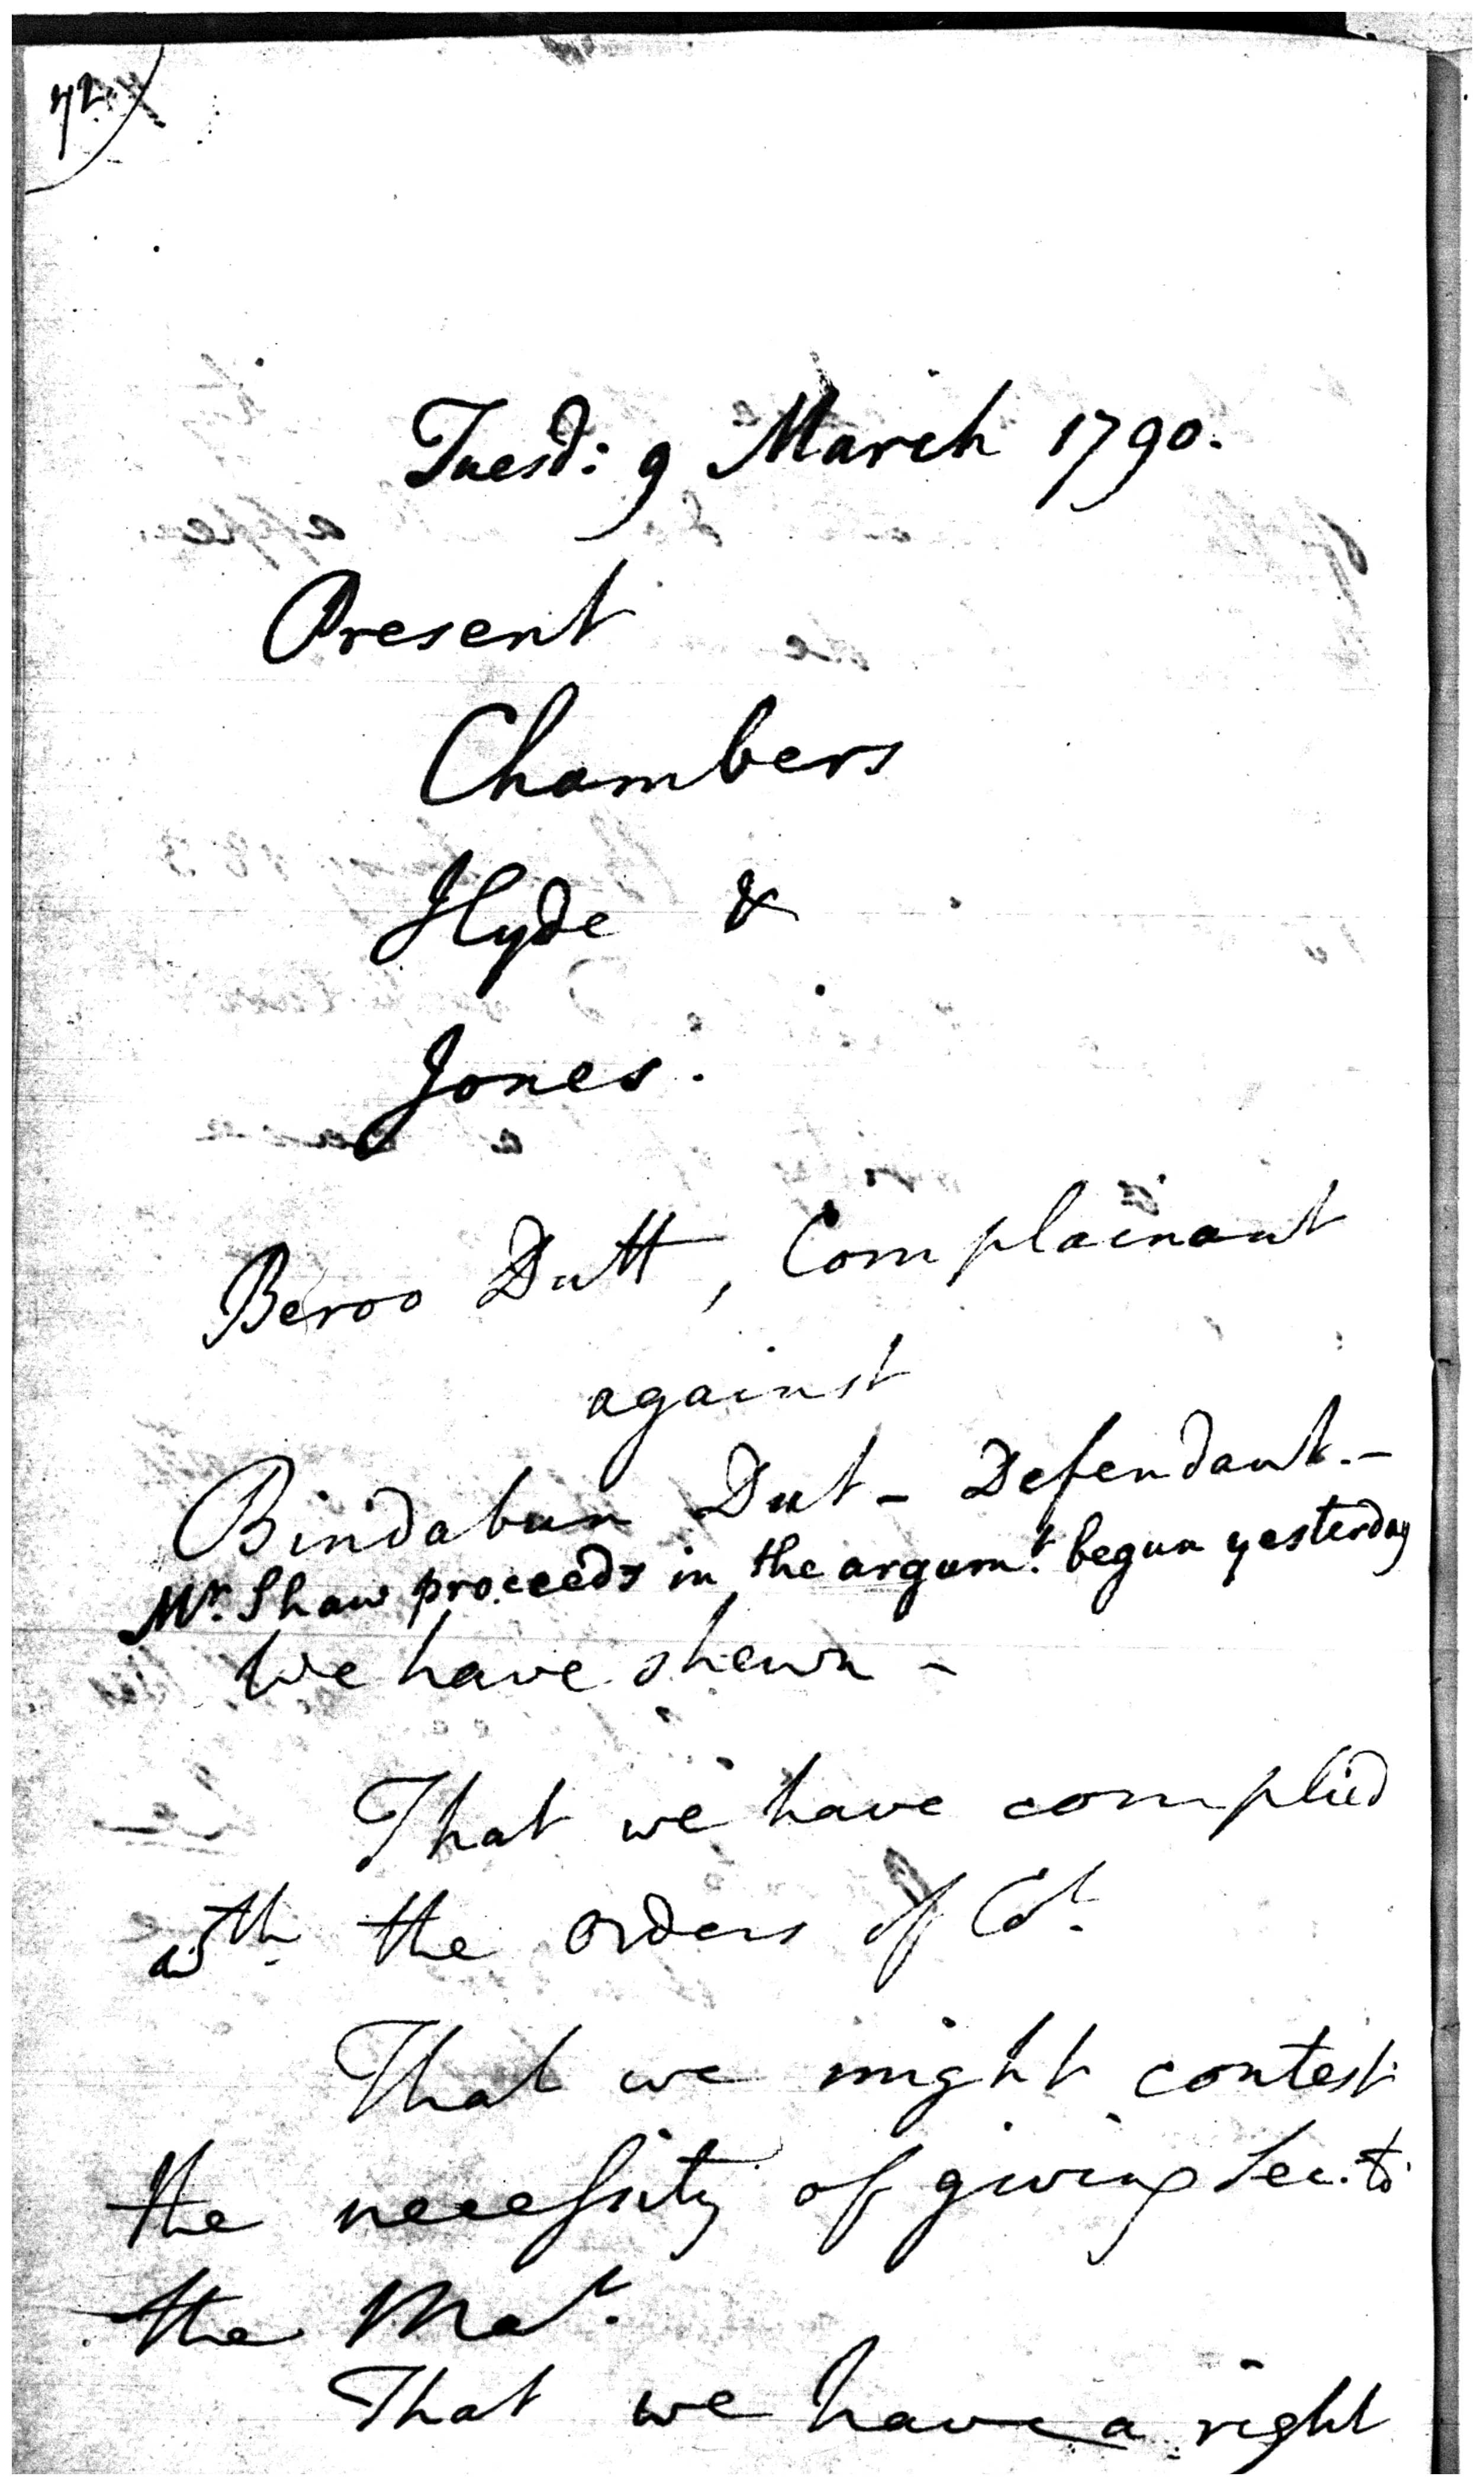 72
Tuesd: 9 March 1790.
Present
Chambers
Hyde &
Jones.
Beroo Dutt, Complainant
against
Bindabun Dut - Defendant. -
Mr. Shaw proceeds in the argumt. begun yesterday
We have shewn -
That we have complied
wth. the orders of Ct.
That we might contest
the necessity of giving Sec. to
the Mat.
That we have a right